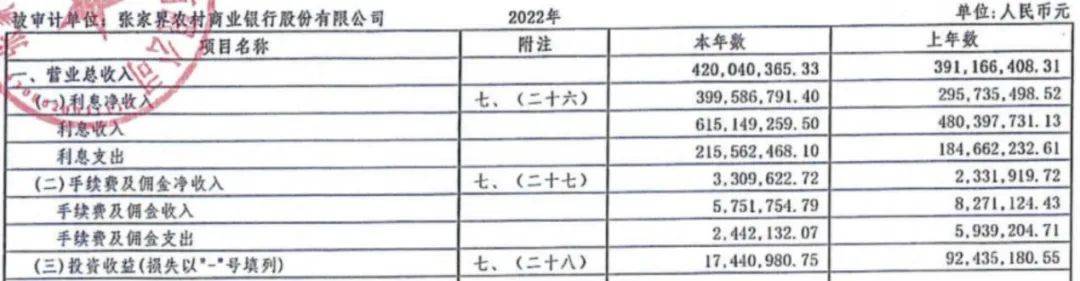 被审计单位:张家界农村商业银行股份有限公司 2022年 单位:人民币元
项目名称 附注 本年数 上年数
一、营业总收入 420,040,365.33 391,166,408.31
(一)利息净收入 七、(二十六) 399,586,791.40 295,735,498.52
利息收入 615,149,259.50 480,397,731.13
利息支出 215,562,468.10 184,662,232.61
(二)手续费及佣金净收入 七、(二十七) 3,309,622.72 2,331,919.72
手续费及佣金收入 5,751,754.79 8,271,124.43
手续费及佣金支出 2,442,132.07 5,939,204.71
(三)投资收益(损失以"-"号填列) 七、(二十八) 17,440,980.75 92,435,180.55